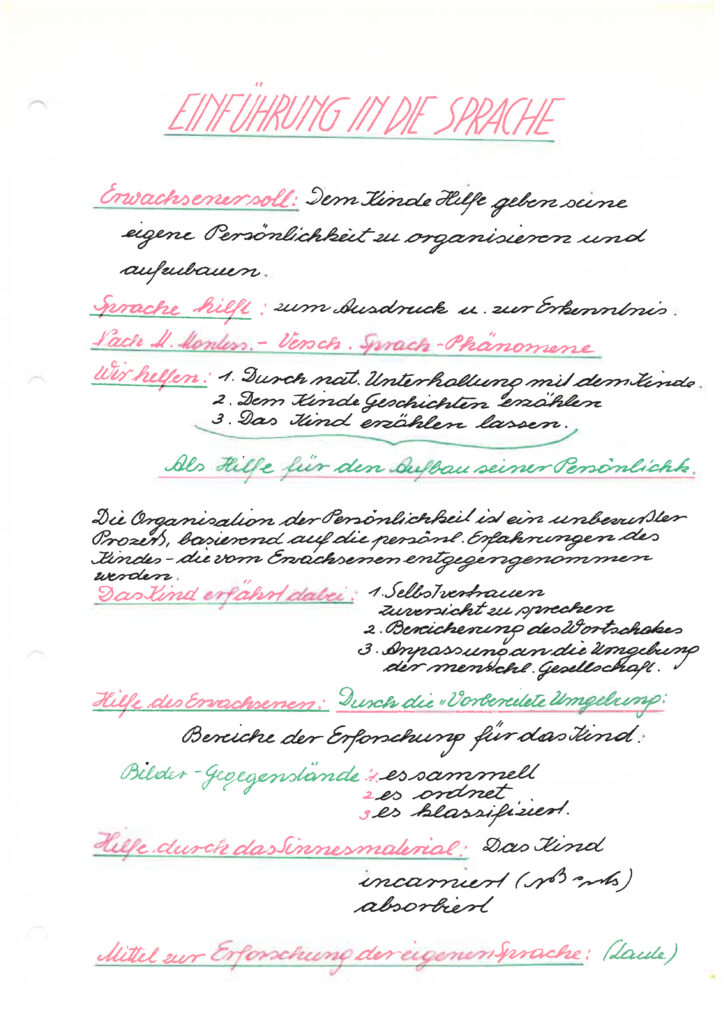 EINFÜHRUNG IN DIE SPRACHE
Erwachsener soll: Dem Kinde Hilfe geben seine
eigene Persönlichkeit zu organisieren und
aufzubauen.
Sprache hilft: zum Ausdruck u. zur Erkenntnis.
Nach M. Montess. - Versch. Sprach-Phänomene
Wir helfen: 1. Durch nat. Unterhaltung mit dem Kinde.
2. Dem Kinde Geschichten erzählen
3. Das Kind erzählen lassen.
Als Hilfe für den Aufbau seiner Persönlichk.
Die Organisation der Persönlichkeit ist ein unbewußter
Prozeß, basierend auf die persönl. Erfahrungen des
Kindes - die vom Erwachsenen entgegengenommen
werden.
Das Kind erfährt dabei: 1. Selbstvertrauen
zuversicht zu sprechen
2. Bereicherung des Wortschatzes
3. Anpassung an die Umgebung
der menschl. Gesellschaft.
Hilfe des Erwachsenen: Durch die "Vorbereitete Umgebung:
Bereiche der Erforschung für das Kind:
Bilder - Gegegenstände 1. es sammelt
2 es ordnet
3 es klassifiziert.
Hilfe durch das Sinnesmaterial: Das Kind
incarniert
absorbiert
Mittel zur Erforschung der eigenen Sprache: (Laute)